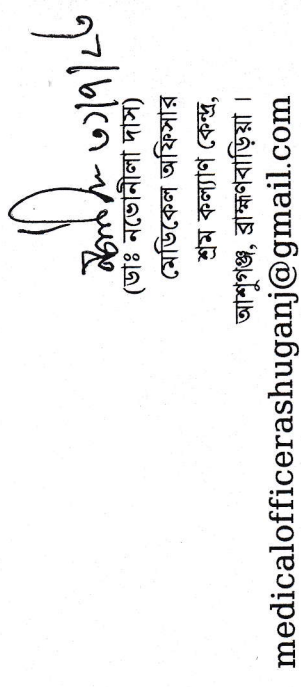 ৩১/৭/২৩
(ডাঃ নভোনীলা দাস)
মেডিকেল অফিসার
শ্রম কল্যাণ কেন্দ্র,
আশুগঞ্জ, ব্রাহ্মণবাড়িয়া ।
medicalofficerashuganj@gmail.com